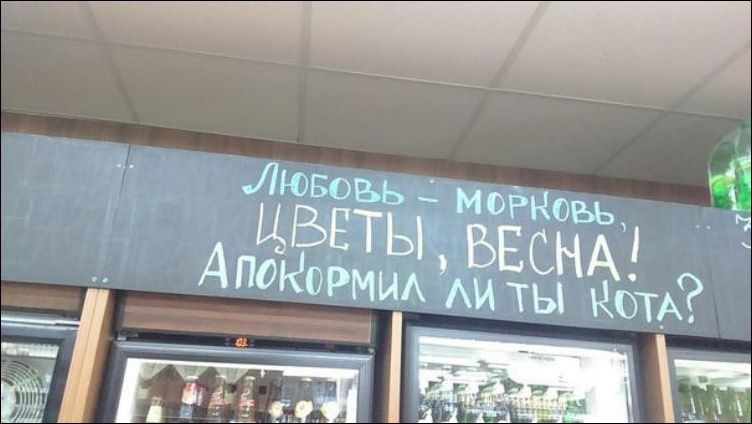 Любовь - морковь,
ЦВЕТЫ, ВЕСНА!
А покормил ли ты кота?